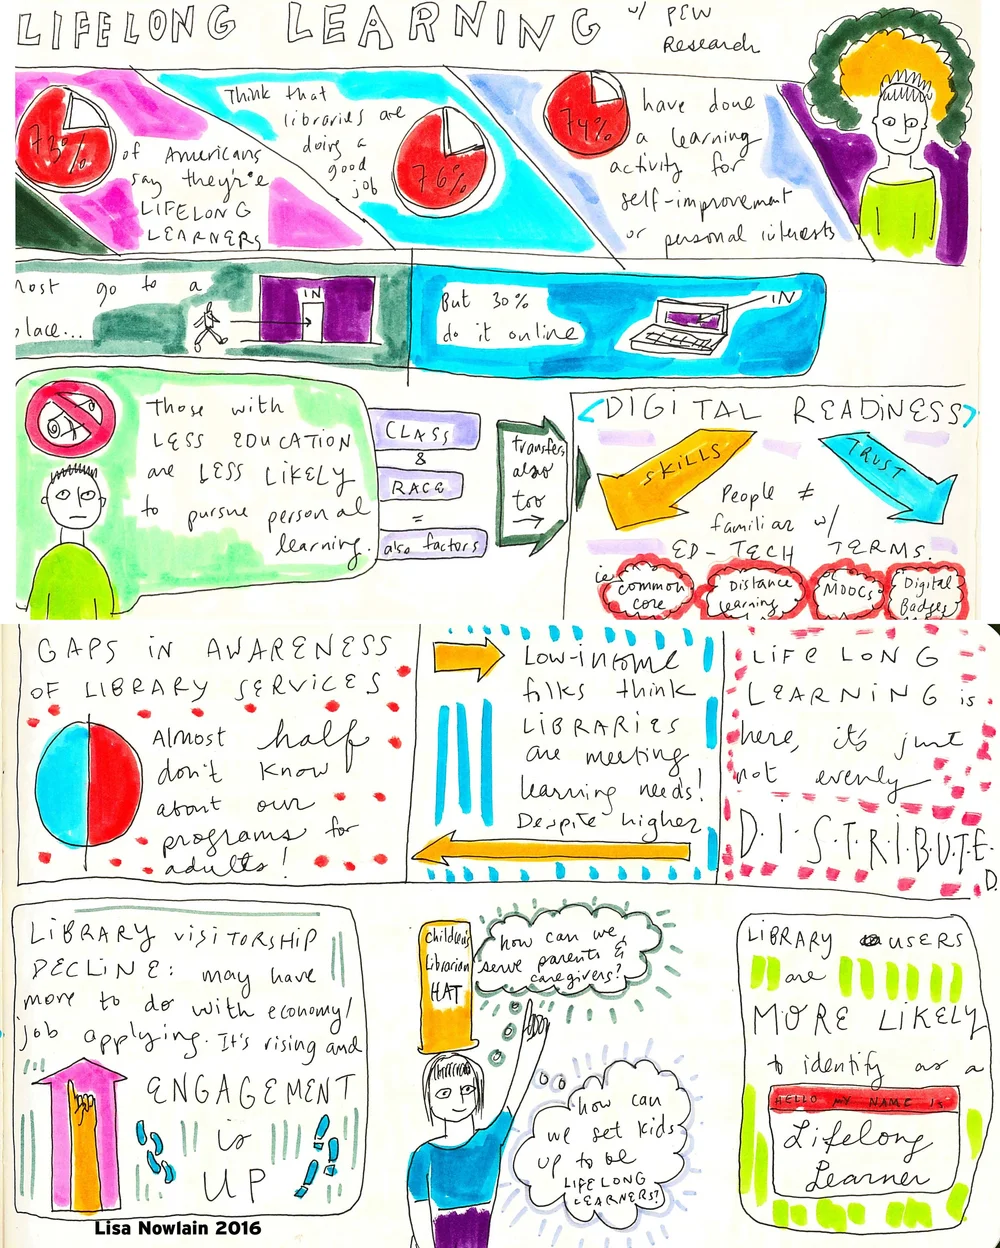 LIFELONG LEARNING w/ PEW
Research
73%
of Americans
say they're
LIFELONG
LEARNERS
Think that
libraries are
doing a
good
job
76%
74%
have done
a learning
activity for
self-improvement
or personal interests
most go to a
place...
IN
But 30%
do it online
IN
Those with
LESS EDUCATION
are LESS LIKELY
to pursue personal
learning.
CLASS
&
RACE
=
also factors
transfers
also
too
DIGITAL READINESS
SKILLS
TRUST
People ≠
familiar w/
ED-TECH TERMS.
ie.
Common
core
Distance
Learning
MOOCs
Digital
Badges
GAPS IN AWARENESS
OF LIBRARY SERVICES
Almost half
don't know
about our
programs for
adults!
Low-income
folks think
LIBRARIES
are meeting
learning needs!
Despite higher
LIFE LONG
LEARNING is
here, it's just
not evenly
D.I.S.T.R.I.B.U.T.E.
D.
LIBRARY VISITORSHIP
DECLINE: may have
more to do with economy/
job applying. It's rising and
ENGAGEMENT
is
UP
children's
Librarian
HAT
how can we
serve parents &
caregivers?
how can
we set kids
up to be
LIFELONG
LEARNERS?
LIBRARY USERS
are
MORE LIKELY
to identify as a
HELLO MY NAME IS
Lifelong
Learner
Lisa Nowlain 2016